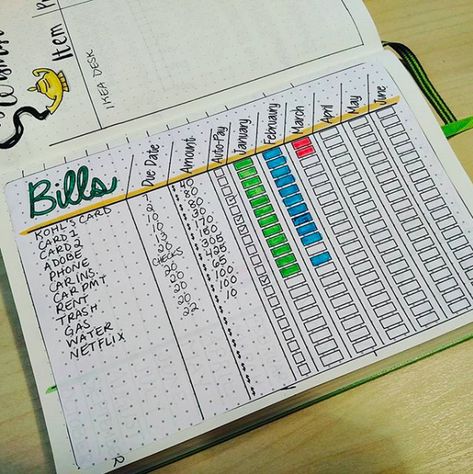 Item
IKEA DESK
Bills Due Date Amount Auto-Pay January February March April May June
KOHL'S CARD $ 40
CARD 1 2 $ 80
CARD 2 10 $ 80
ADOBE 10 $ 30
PHONE 13 $ 170
CAR INS. 20 $ 150
CAR PMT CHECKS $ 305
RENT 20 $ 425
TRASH 20 $ 65
GAS 20 $ 100
WATER 20 $ 100
NETFLIX 22 $ 10
$
$
$
$
$
$